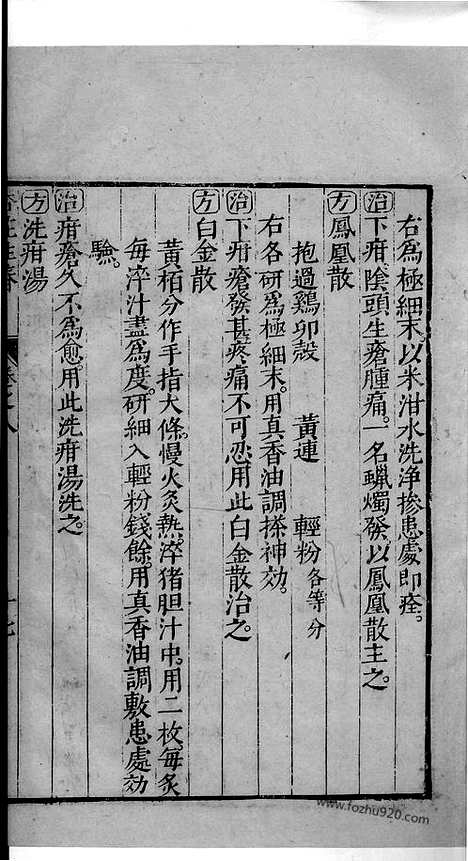 右爲極細末以米泔水洗净摻患處即痊。
治下疳陰頭生瘡腫痛。一名蠟燭發以鳳凰散主之。
方鳳凰散
抱過鷄卵殼　黃連　輕粉各等分
右各研爲極細末。用真香油調搽神効。
治下疳瘡發甚疼痛不可忍。用此白金散治之。
方白金散
黃栢分作手指大條。慢火灸熱。淬猪胆汁中。用二枚。每炙
每淬汁盡爲度。研細入輕粉錢餘。用真香油調敷患處効
驗。
治疳瘡久不爲愈。用此洗疳湯洗之。
方洗疳湯
www.fozhu920.com